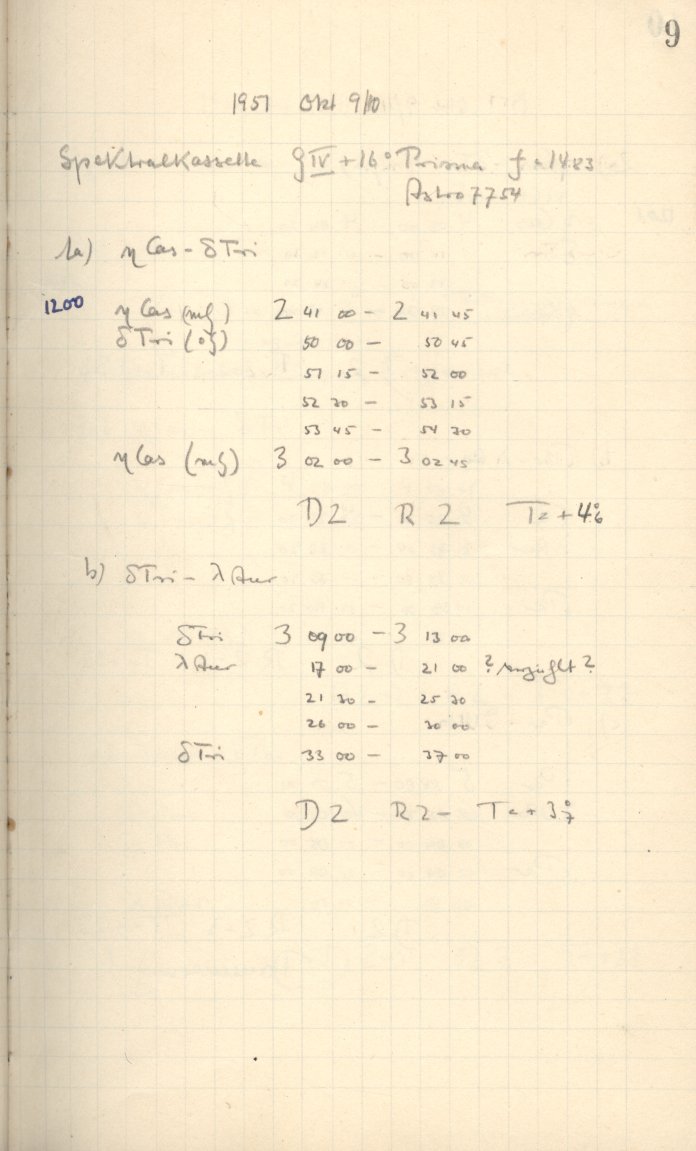 9
1951 Okt 9/10
Spektralkassette g IV + 16° Prisma f = 1483
Astro 7754
1a) η Cas - δ Tri
1200 η Cas (mg) 2 41 00 - 2 41 45
δ Tri 50 00 - 50 45
51 15 - 52 00
52 30 - 53 15
53 45 - 54 30
η Cas (mg) 3 02 00 - 3 02 45
D 2 R 2 T = + 4°6
b) δ Tri - λ Aur
δ Tri 3 09 00 - 3 13 00
λ Aur 17 00 - 21 00 ? verzählt ?
21 30 - 25 30
26 00 - 30 00
δ Tri 33 00 - 37 00
D 2 R 2 - T = + 3°7